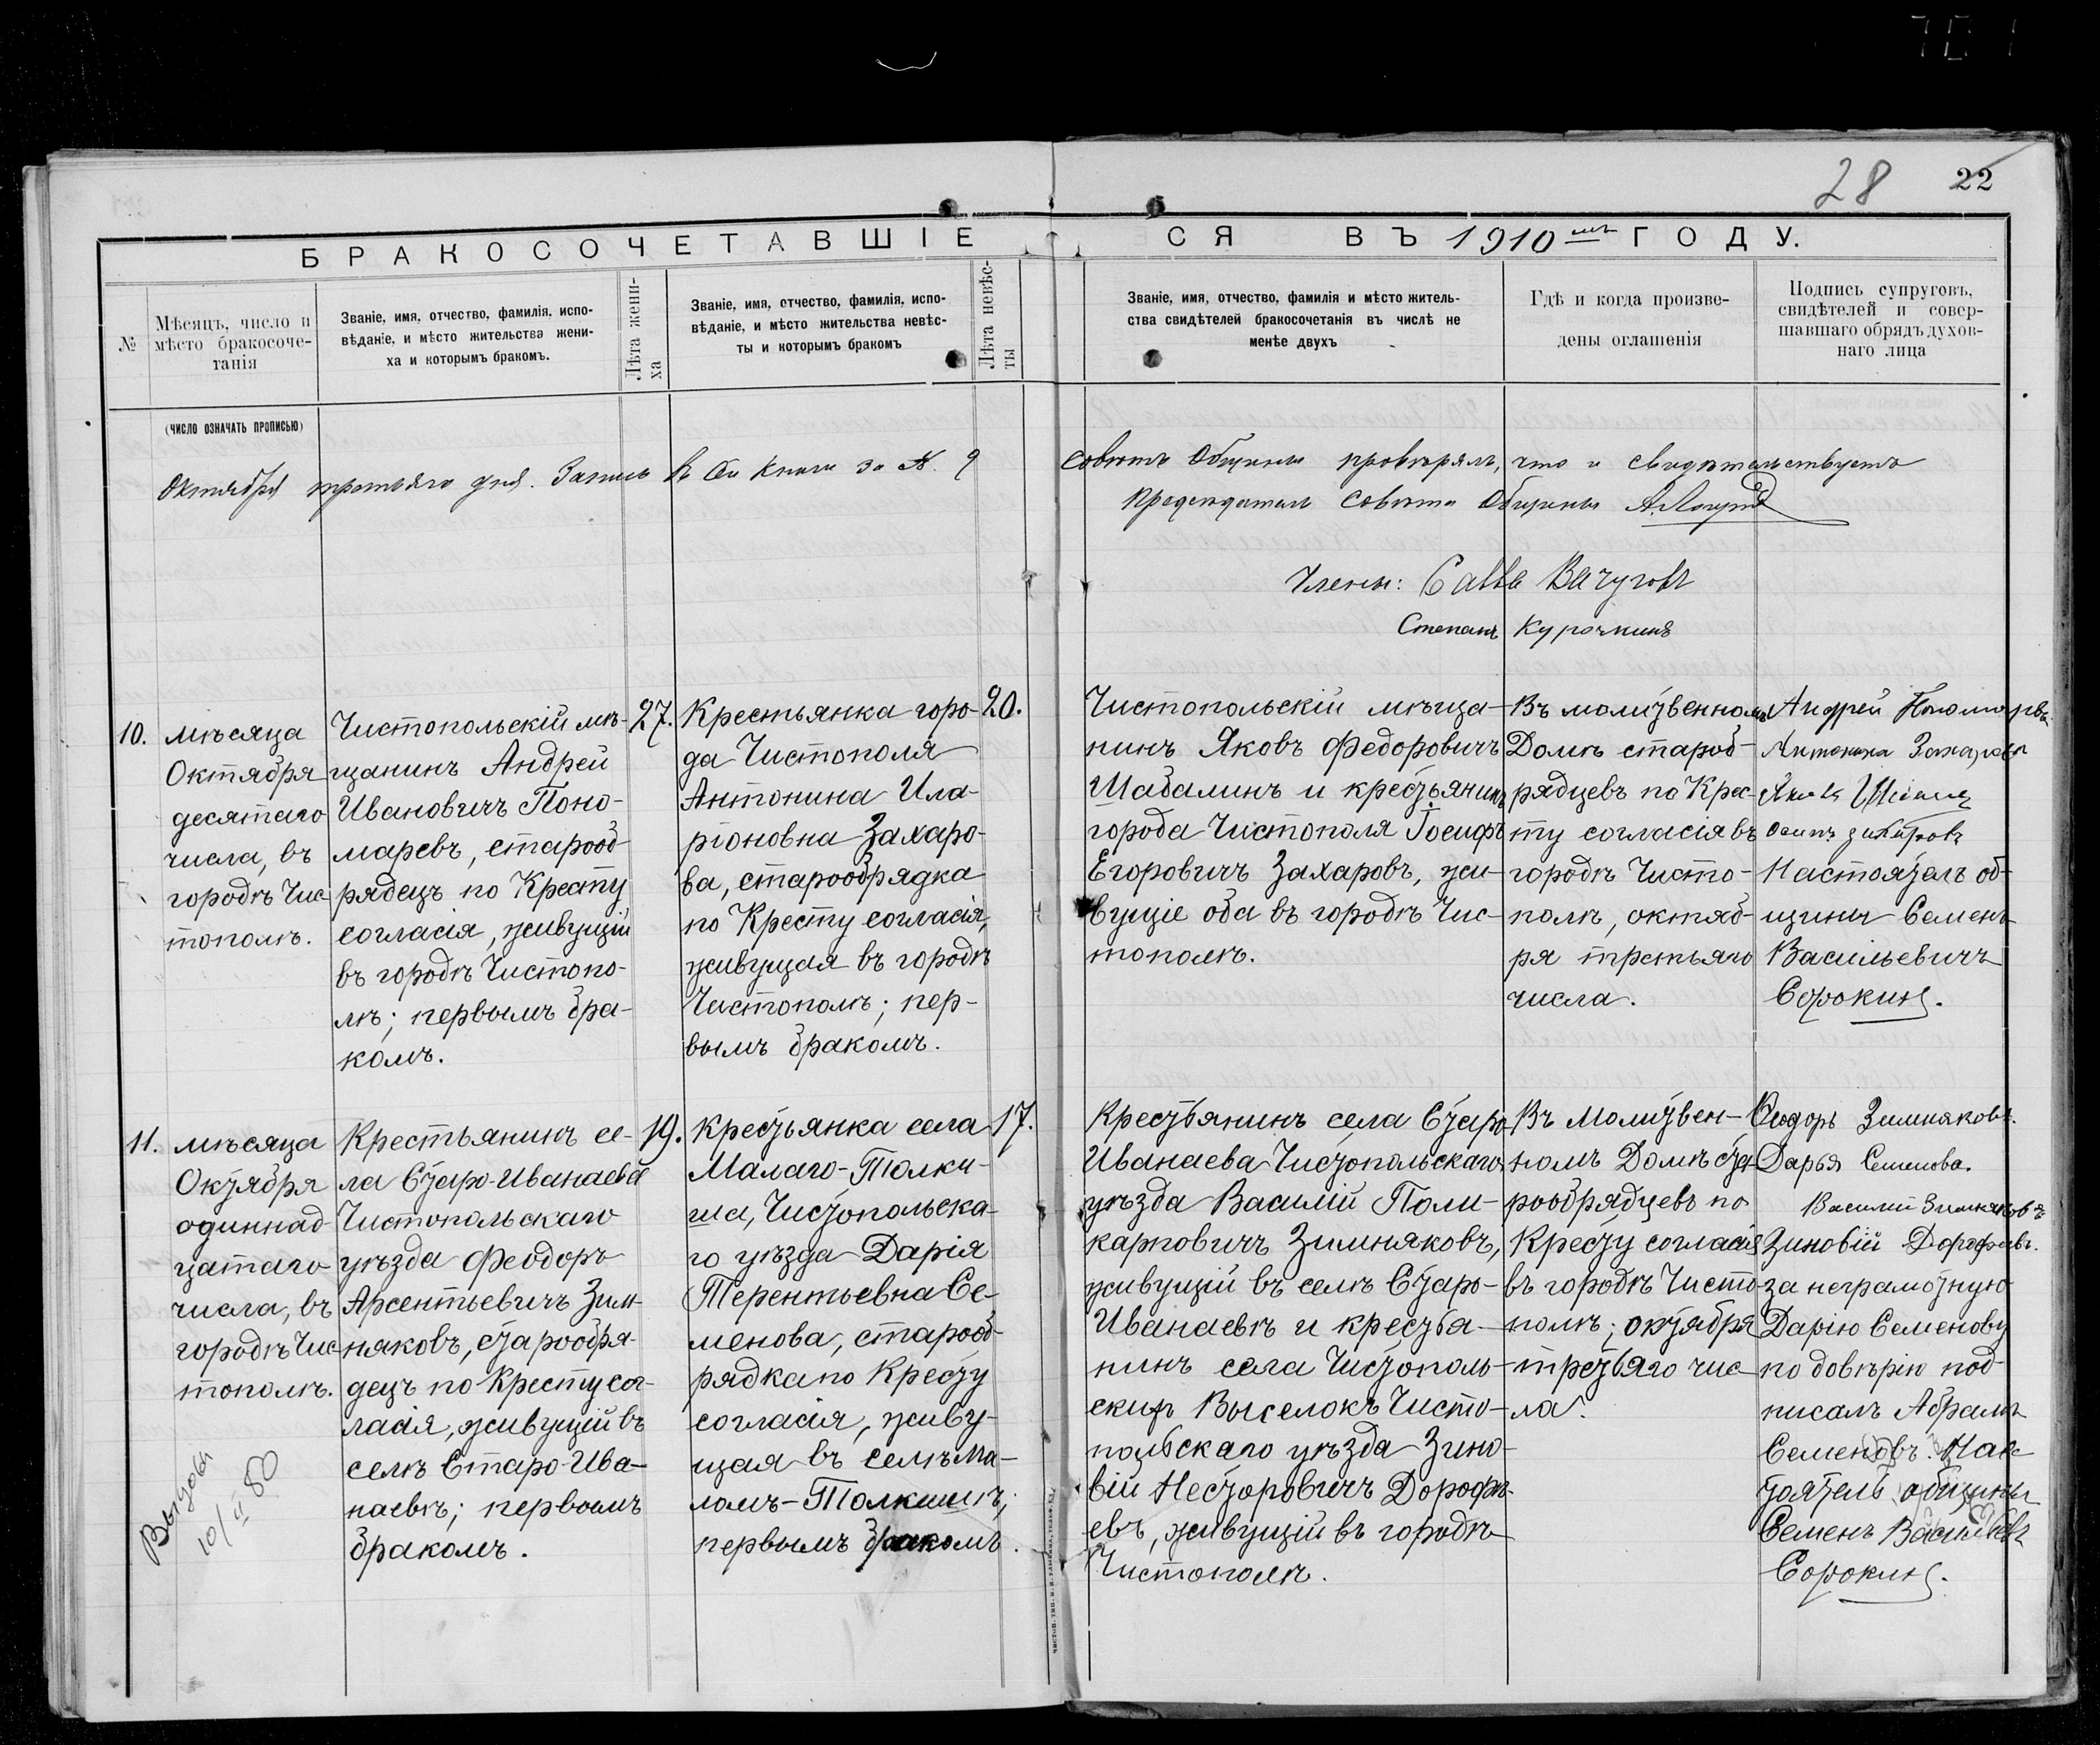 28 22
БРАКОСОЧЕТАВШІЕСЯ ВЪ 1910 мъ ГОДУ.
№
Мѣсяцъ, число и
мѣсто бракосоче-
танія
Званіе, имя, отчество, фамилія, испо-
вѣданіе, и мѣсто жительства жени-
ха и которымъ бракомъ.
Лѣта жени-
ха
Званіе, имя, отчество, фамилія, испо-
вѣданіе, и мѣсто жительства невѣс-
ты и которымъ бракомъ
Лѣта невѣс-
ты
Званіе, имя, отчество, фамилія и мѣсто житель-
ства свидѣтелей бракосочетанія въ числѣ не
менѣе двухъ
Гдѣ и когда произве-
дены оглашенія
Подпись супруговъ,
свидѣтелей и совер-
шавшаго обрядъ духов-
наго лица
(ЧИСЛО ОЗНАЧАТЬ ПРОПИСЬЮ)
Октября третьяго дня. Запись въ сей книги за №. 9 Совѣтъ Общины провѣрялъ, что и свидѣтельствуетъ
Предсѣдатель Совѣта Общины
Члены: Савва Вачуговъ
Степанъ Курочкинъ
10.
мѣсяца
Октября
десятаго
числа, въ
городѣ Чис
тополѣ.
Чистопольскій мѣ-
щанинъ Андрей
Ивановичъ Поно-
маревъ, старооб-
рядецъ по Кресту
согласія, живущій
въ городѣ Чистопо-
лѣ; первымъ бра-
комъ.
27.
Крестьянка горо-
да Чистополя
Антонина Ила-
ріоновна Захаро-
ва, старообрядка
по Кресту согласія,
живущая въ городѣ
Чистополѣ; пер-
вымъ бракомъ.
20.
Чистопольскій мѣща-
нинъ Яковъ Федоровичъ
Шабалинъ и крестьянинъ
города Чистополя Іосифъ
Егоровичъ Захаровъ, жи-
вущіе оба въ городѣ Чис-
тополѣ.
Въ молитвенномъ
Домѣ староб-
рядцевъ по Крес-
ту согласія въ
городѣ Чисто-
полѣ, октяб-
ря третьяго
числа.
Андрей Пономаревъ
Антонина Захарова
Яковъ
Осипъ Захаровъ
Настоятель об-
щины Семенъ
Васильевичъ
Сорокинъ.
11.
мѣсяца
Октября
одиннад
цатаго
числа, въ
городѣ Чис
тополѣ.
Крестьянинъ се-
ла Старо-Иванаева
Чистопольскаго
уѣзда Феодоръ
Арсентьевичъ Зим-
няковъ, старообря-
децъ по Кресту сог-
ласія, живущій въ
селѣ Старо-Ива-
наевѣ; первымъ
бракомъ.
19.
Крестьянка села
Малаго-Толки-
ша, Чистопольска-
го уѣзда Дарія
Терентьевна Се-
менова, старооб-
рядка по Кресту
согласія, живу-
щая въ селѣ Ма-
ломъ-Толкишѣ;
первымъ бракомъ.
17.
Крестьянинъ села Старо
Иванаева Чистопольскаго
уѣзда Василій Поли-
карповичъ Зимняковъ,
живущій въ селѣ Старо-
Иванаевѣ и крестья-
нинъ села Чистополь-
скихъ Выселокъ Чисто-
польскаго уѣзда Зино-
вій Несторовичъ Дорофѣ-
евъ, живущій въ городѣ
Чистополѣ.
Въ Молитвен-
номъ Домѣ ста-
рообрядцевъ по
Кресту согласія
въ городѣ Чисто-
полѣ; октября
третьяго чис-
ла.
Ѳедоръ Зимняковъ.
Дарья Семенова.
Василий Зимняковъ
Зиновій Дорофѣевъ.
за неграмотную
Дарію Семенову
по довѣрію под-
писалъ Абрамъ
Семеновъ. Нас-
тоятель общины
Семенъ Васильевъ
Сорокинъ.
Выдавъ
10/II 80